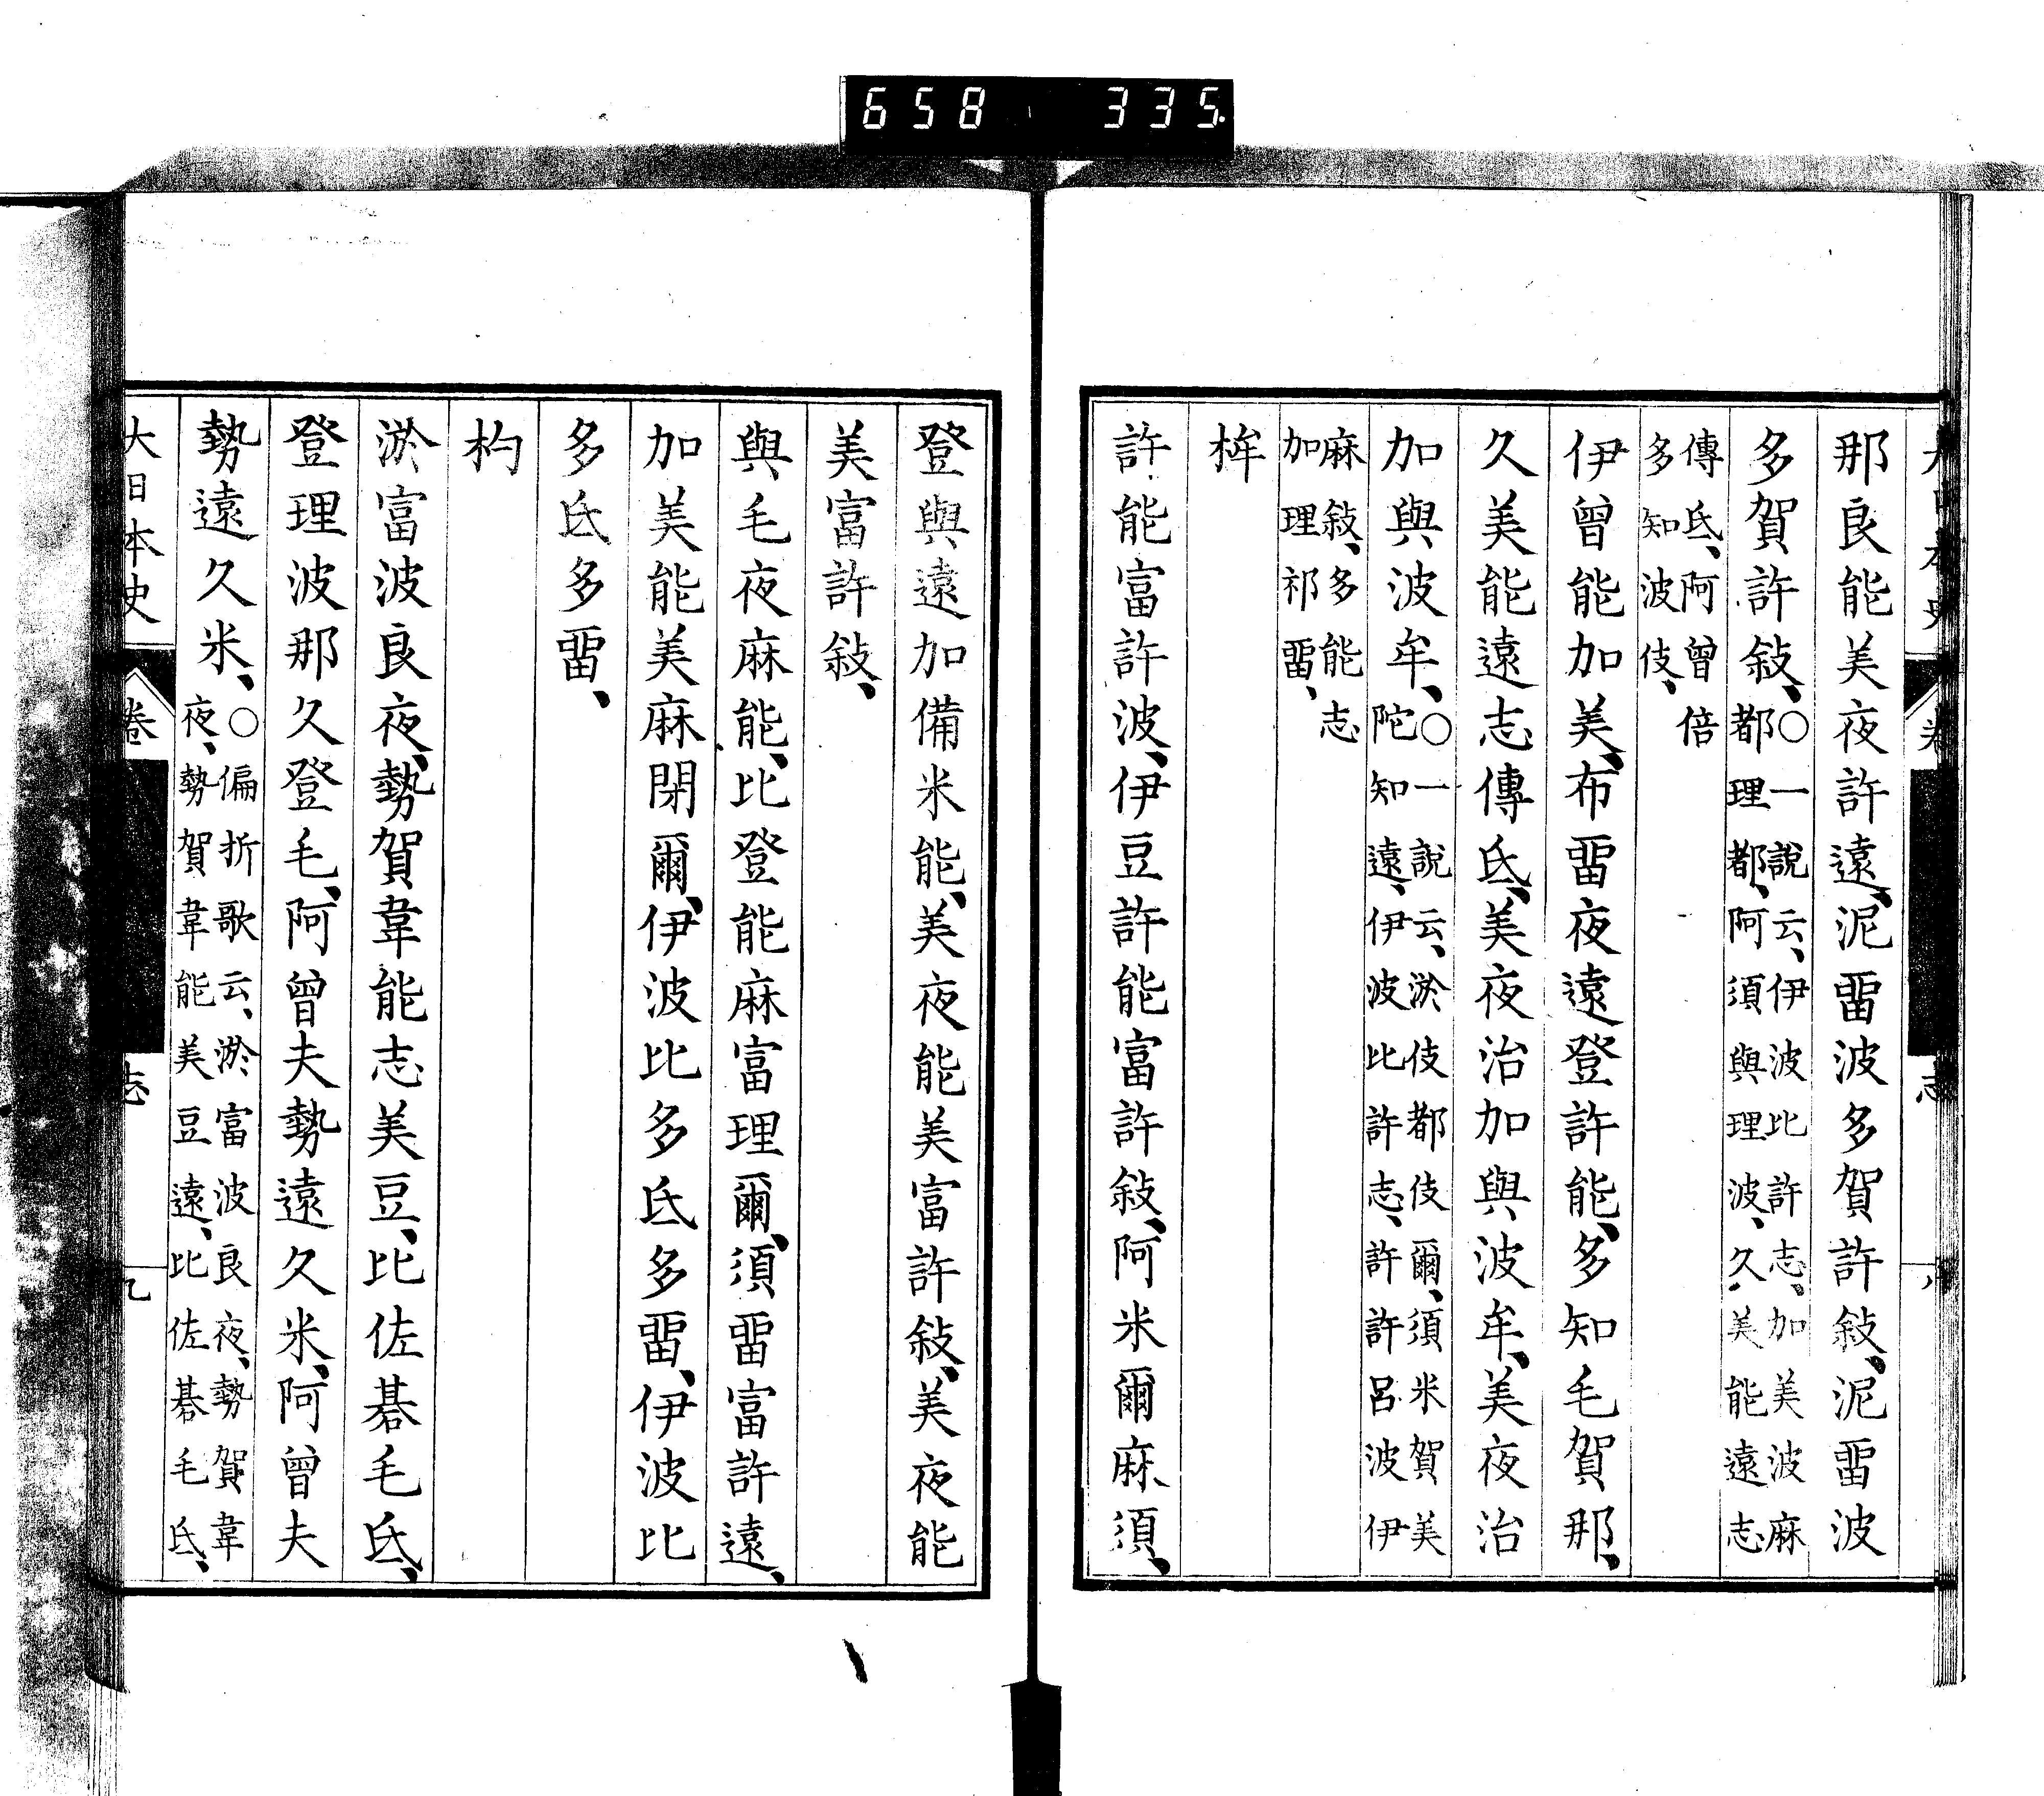 那良能美夜許遠、泥畱波多賀許敍、泥畱波
多賀許敍、○一說云、伊波比許志、加美波麻
都理都、阿須與理波、久美能遠志
傳氐、阿曾倍
多知波伎、
伊曾能加美、布畱夜遠登許能、多知毛賀那、
久美能遠志傳氐、美夜治加與波牟、美夜治
加與波牟、○一說云、淤伎都伎爾、須米賀美
陀知遠、伊波比許志、許許呂波伊
麻敍、多能志
加理祁畱、
桙
許能富許波、伊豆許能富許敍、阿米爾麻須、
登與遠加備米能、美夜能美富許敍、美夜能
美富許敍、
與毛夜麻能、比登能麻富理爾、須畱富許遠、
加美能美麻閇爾、伊波比多氐多畱、伊波比
多氐多畱、
杓
淤富波良夜、勢賀韋能志美豆、比佐碁毛氐、
登理波那久登毛、阿曾夫勢遠久米、阿曾夫
勢遠久米、○偏折歌云、淤富波良夜、勢賀韋
夜、勢賀韋能美豆遠、比佐碁毛氐、
大日本史 卷 志 九
658 335